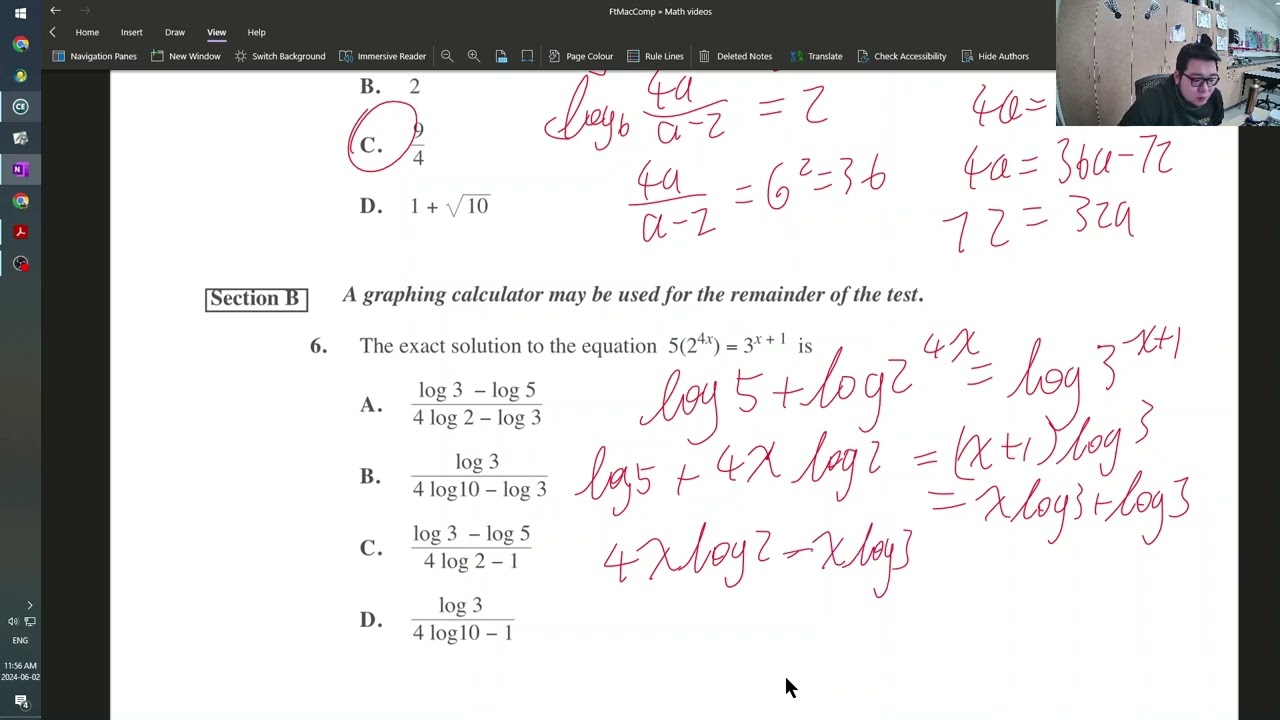 FtMacComp » Math videos
Home Insert Draw View Help
Navigation Panes New Window Switch Background Immersive Reader Page Colour Rule Lines Deleted Notes Translate Check Accessibility Hide Authors
B. 2
C. 9/4
D. 1 + √10
log₆ 4a/(a-2) = 2
4a/(a-2) = 6² = 36
4a =
4a = 36a - 72
72 = 32a
Section B A graphing calculator may be used for the remainder of the test.
6. The exact solution to the equation 5(2^{4x}) = 3^{x + 1} is
A. (log 3 – log 5)/(4 log 2 – log 3)
B. log 3/(4 log10 – log 3)
C. (log 3 – log 5)/(4 log 2 – 1)
D. log 3/(4 log10 – 1)
log 5 + log 2^{4x} = log 3^{x+1}
log 5 + 4x log 2 = (x+1) log 3
= x log 3 + log 3
4x log 2 - x log 3
ENG
11:56 AM
2024-06-02
4